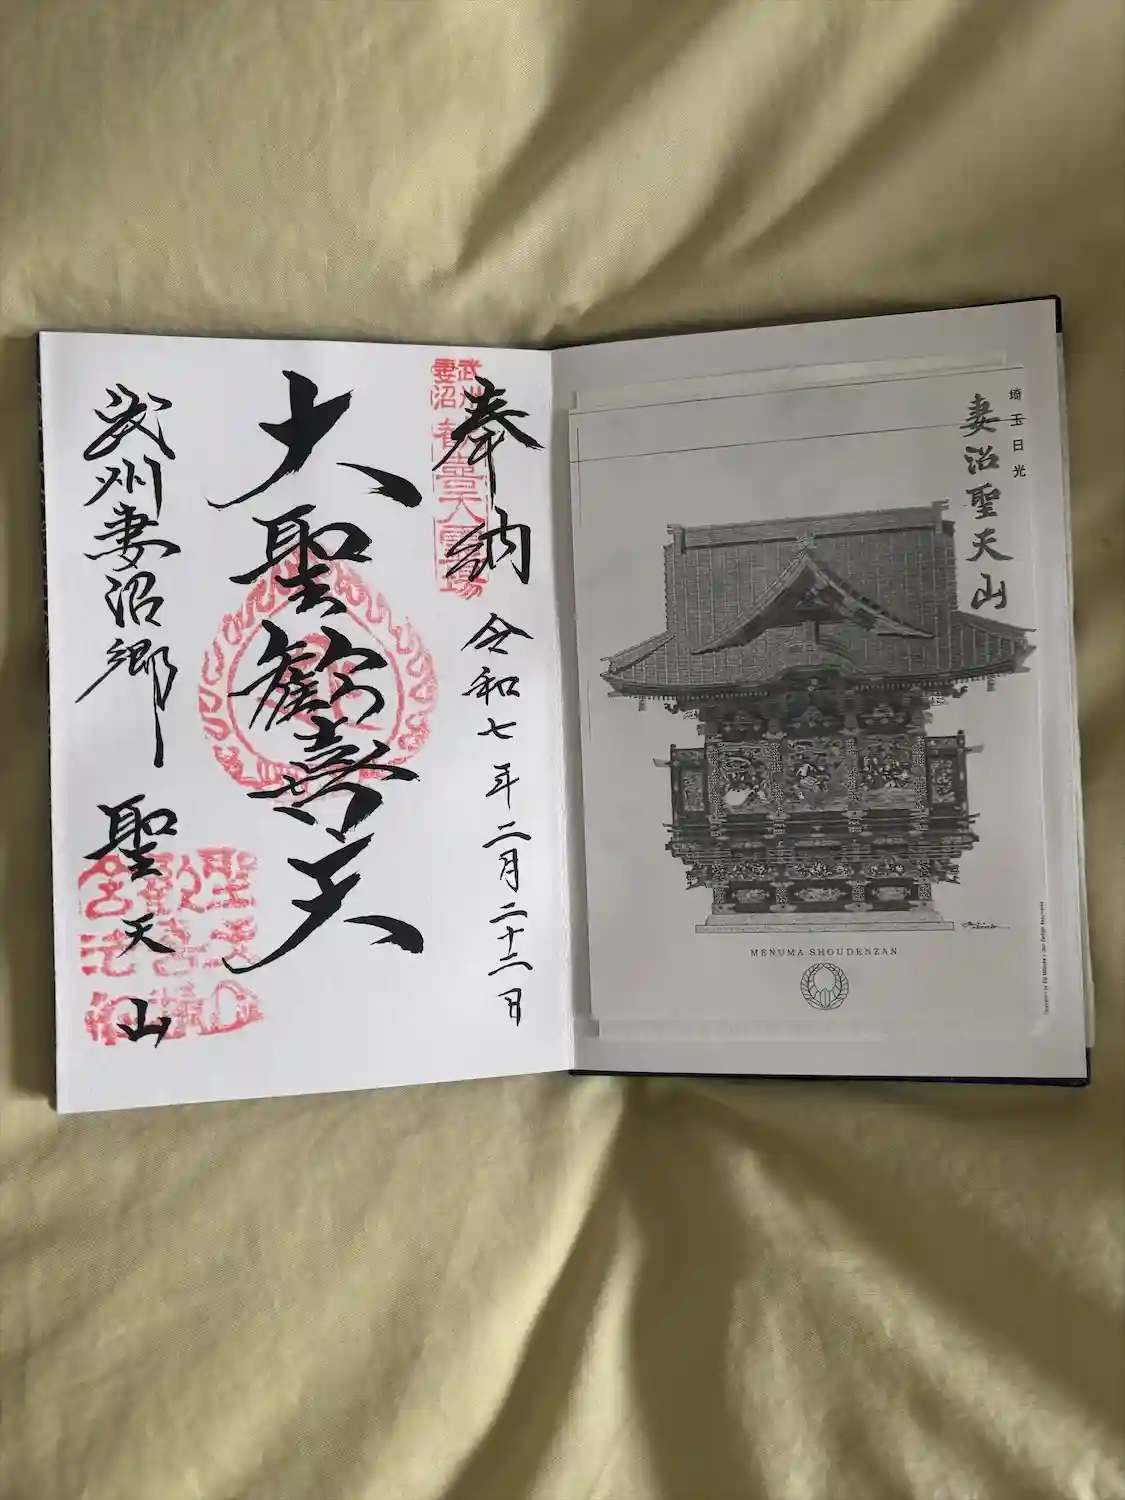 埼玉日光
妻沼聖天山
MENUMA SHOUDENZAN
奉納
令和七年二月二十二日
武州
妻沼
歓喜天霊場
大聖歓喜天
武州妻沼郷
聖天山